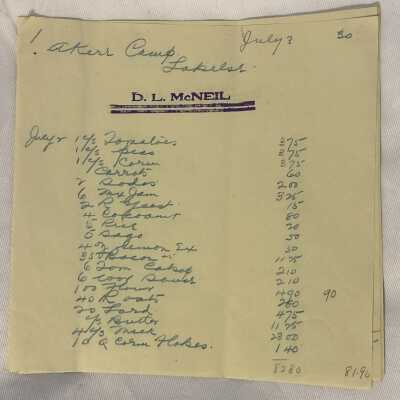 ! Akerr Camp July 3 30
Lakelse
D. L. McNEIL
July 2 1 c/s Tomatoes 3 75
1 c/s Peas 3 75
1 c/s Corn 3 75
Carrots 60
2 Sodas 2 00
6 Mx Jam 3 25
2 R Yeast 15
4 Cokoanut 80
5 Rice 20
5 Sago 50
4 oz Lemon Ex 50
35 Bacon 11 75
6 Tom Catsup 2 10
6 2 10
100 Flour 4 90 90
40 R oats 2 80
20 Lard 4 75
Butter 11 75
4 c/s Milk 23 00
10 Q Corn Flakes. 1 40
82 80 81.90